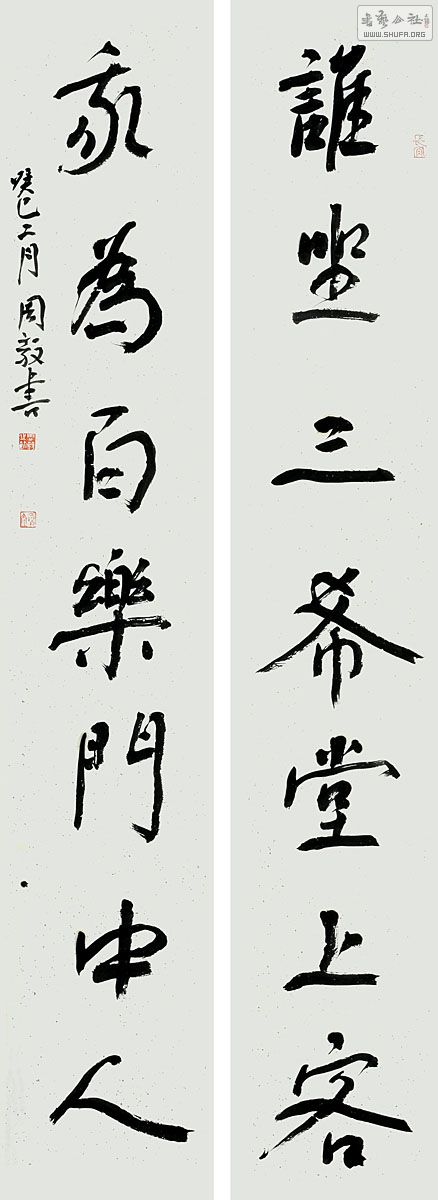 書藝公社
WWW.SHUFA.ORG
誰三希堂上客
我為百樂門中人
癸巳二月周毅書